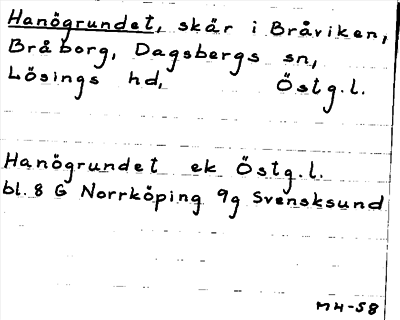 Hanögrundet, skär i Bråviken,
Bråborg, Dagsbergs sn,
Lösings hd, Östg.l.
Hanögrundet ek Östg.l.
bl. 8 G Norrköping 9g Svensksund
MH-58